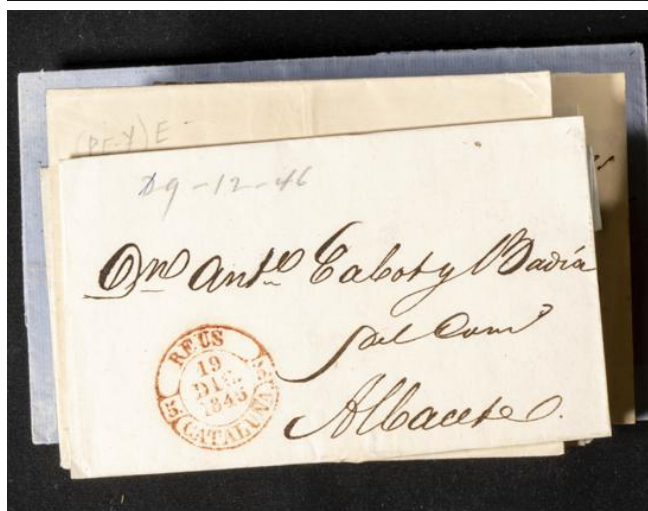 (PE-Y) E-
19-12-46
Dn Anto Cabot y Badía
del Comº
Albacete.
REUS
19
DIC.
1845
CATALUÑA